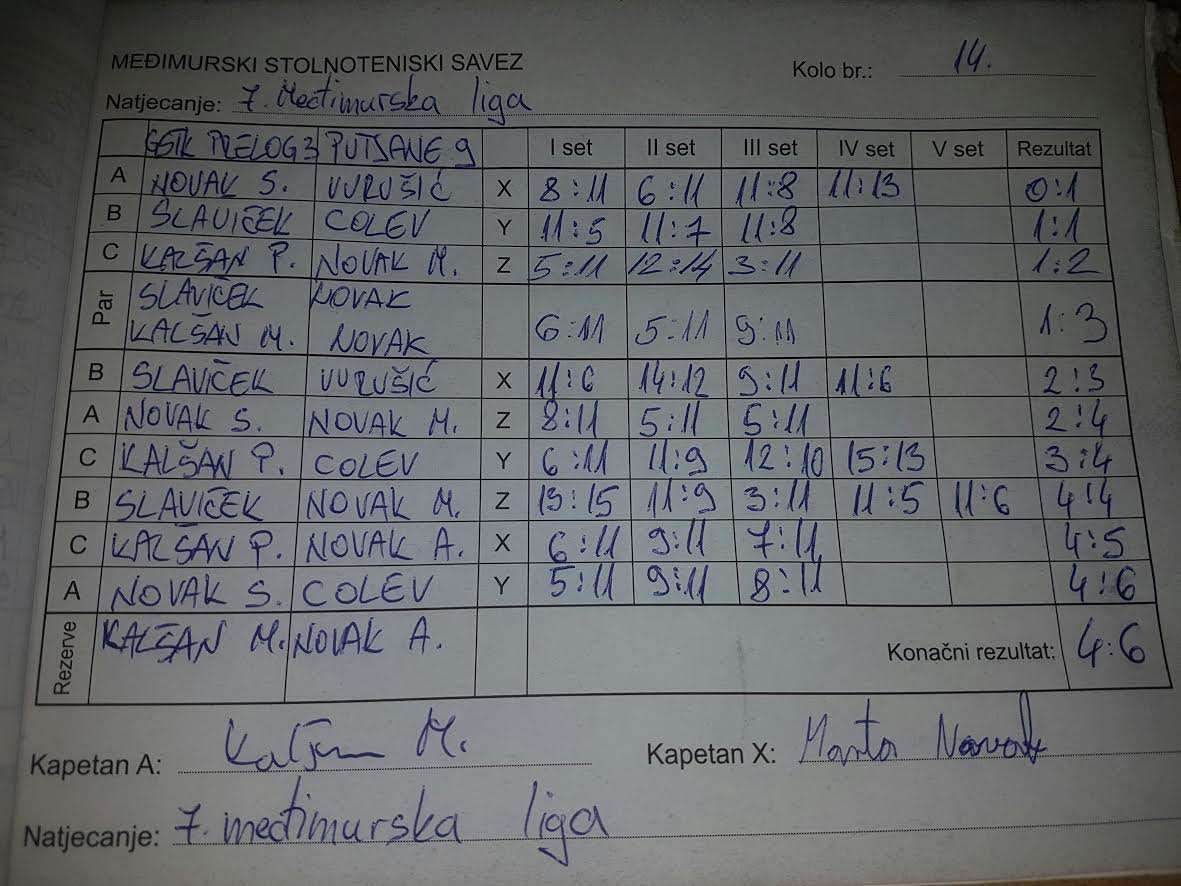 MEĐIMURSKI STOLNOTENISKI SAVEZ Kolo br.: 14.
Natjecanje: 7. Međimurska liga
GSTK PRELOG 3 PUTJANE 9 I set II set III set IV set V set Rezultat
A NOVAK S. VURUŠIĆ X 8:11 6:11 11:8 11:13 0:1
B SLAVIČEK COLEV Y 11:5 11:7 11:8 1:1
C KALŠAN P. NOVAK M. Z 5:11 12:14 3:11 1:2
Par SLAVIČEK NOVAK
KALŠAN M. NOVAK 6:11 5:11 9:11 1:3
B SLAVIČEK VURUŠIĆ X 11:6 14:12 9:11 11:6 2:3
A NOVAK S. NOVAK M. Z 8:11 5:11 5:11 2:4
C KALŠAN P. COLEV Y 6:11 11:9 12:10 15:13 3:4
B SLAVIČEK NOVAK M. Z 13:15 11:9 3:11 11:5 11:6 4:4
C KALŠAN P. NOVAK A. X 6:11 9:11 7:11 4:5
A NOVAK S. COLEV Y 5:11 9:11 8:11 4:6
Rezerve KALŠAN M. NOVAK A. Konačni rezultat: 4:6
Kapetan A: Kalšan M. Kapetan X: Marta Novak
Natjecanje: 7. međimurska liga